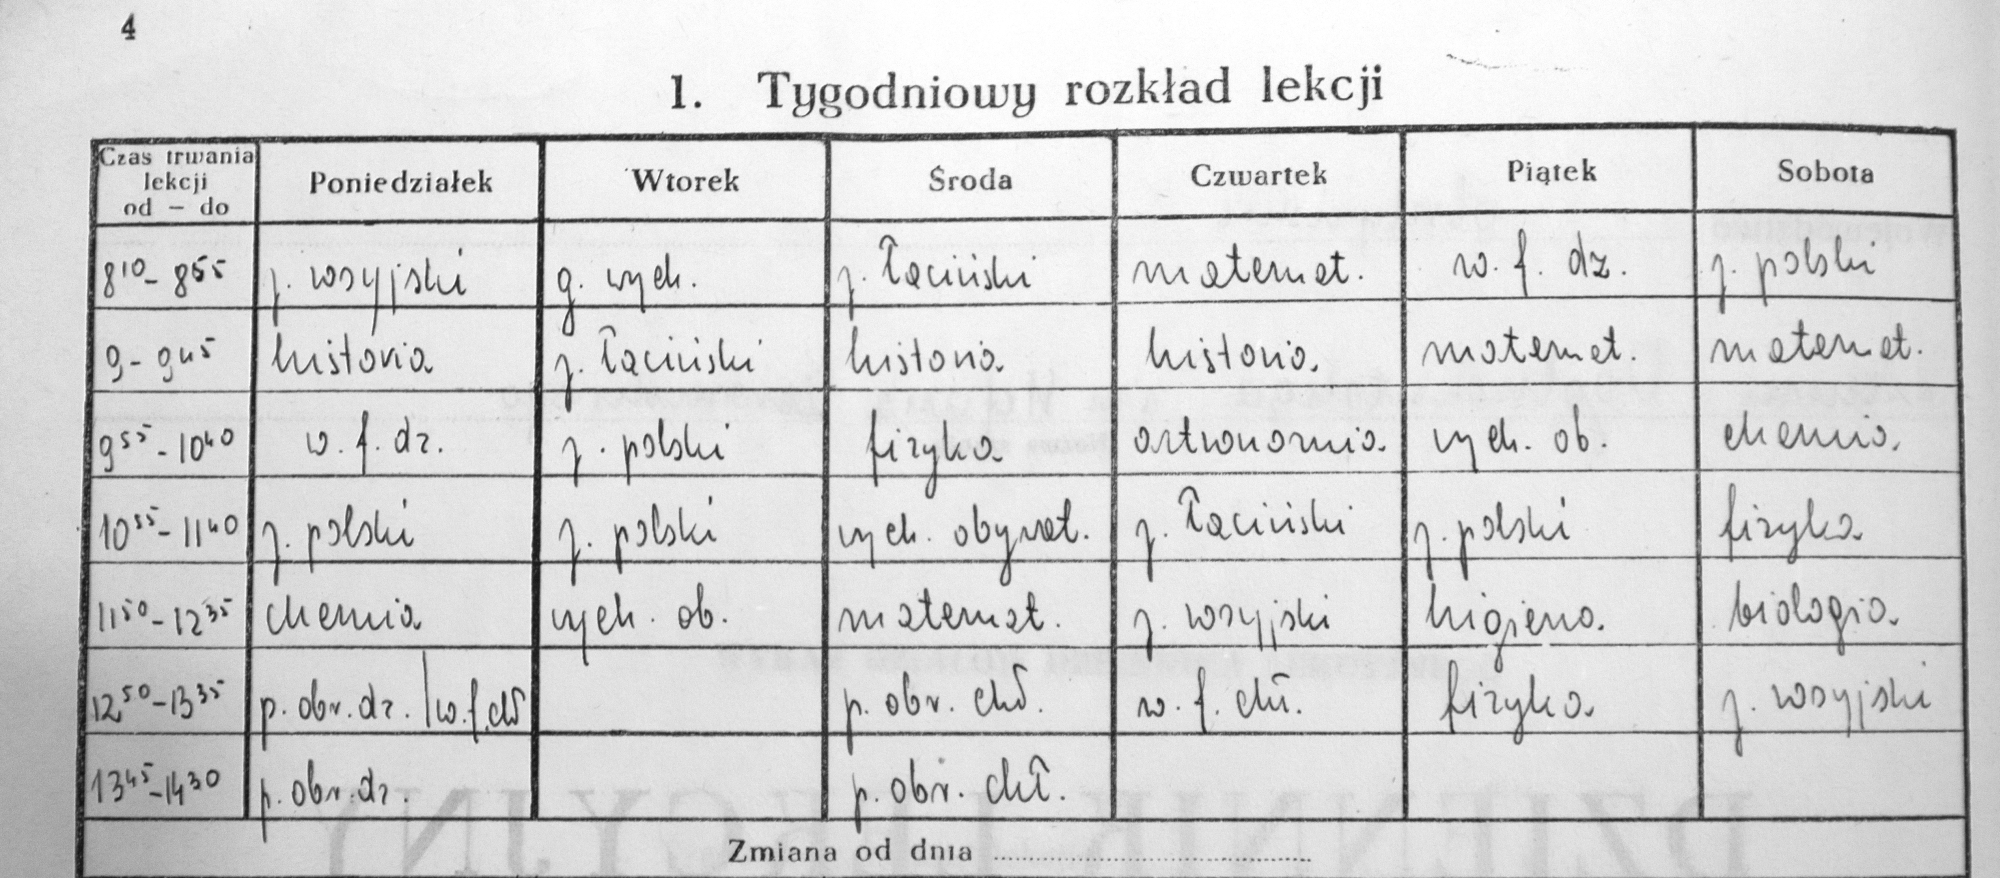 4
1. Tygodniowy rozkład lekcji
Czas trwania lekcji od – do Poniedziałek Wtorek Środa Czwartek Piątek Sobota
8¹⁰- 8⁵⁵ j. rosyjski g. wych. j. łaciński matemat. w. f. dz. j. polski
9- 9⁴⁵ historia j. łaciński historia historia matemat. matemat.
9⁵⁵-10⁴⁰ w. f. dz. j. polski fizyka astronomia wych. ob. chemia
10⁵⁵-11⁴⁰ j. polski j. polski wych. obywat. j. łaciński j. polski fizyka
11⁵⁰-12³⁵ chemia wych. ob. matemat. j. rosyjski higiena biologia
12⁵⁰-13³⁵ p. obr. dz. | w. f. chł p. obr. chł. w. f. chł. fizyka j. rosyjski
13⁴⁵-14³⁰ p. obr. dz. p. obr. chł.
Zmiana od dnia